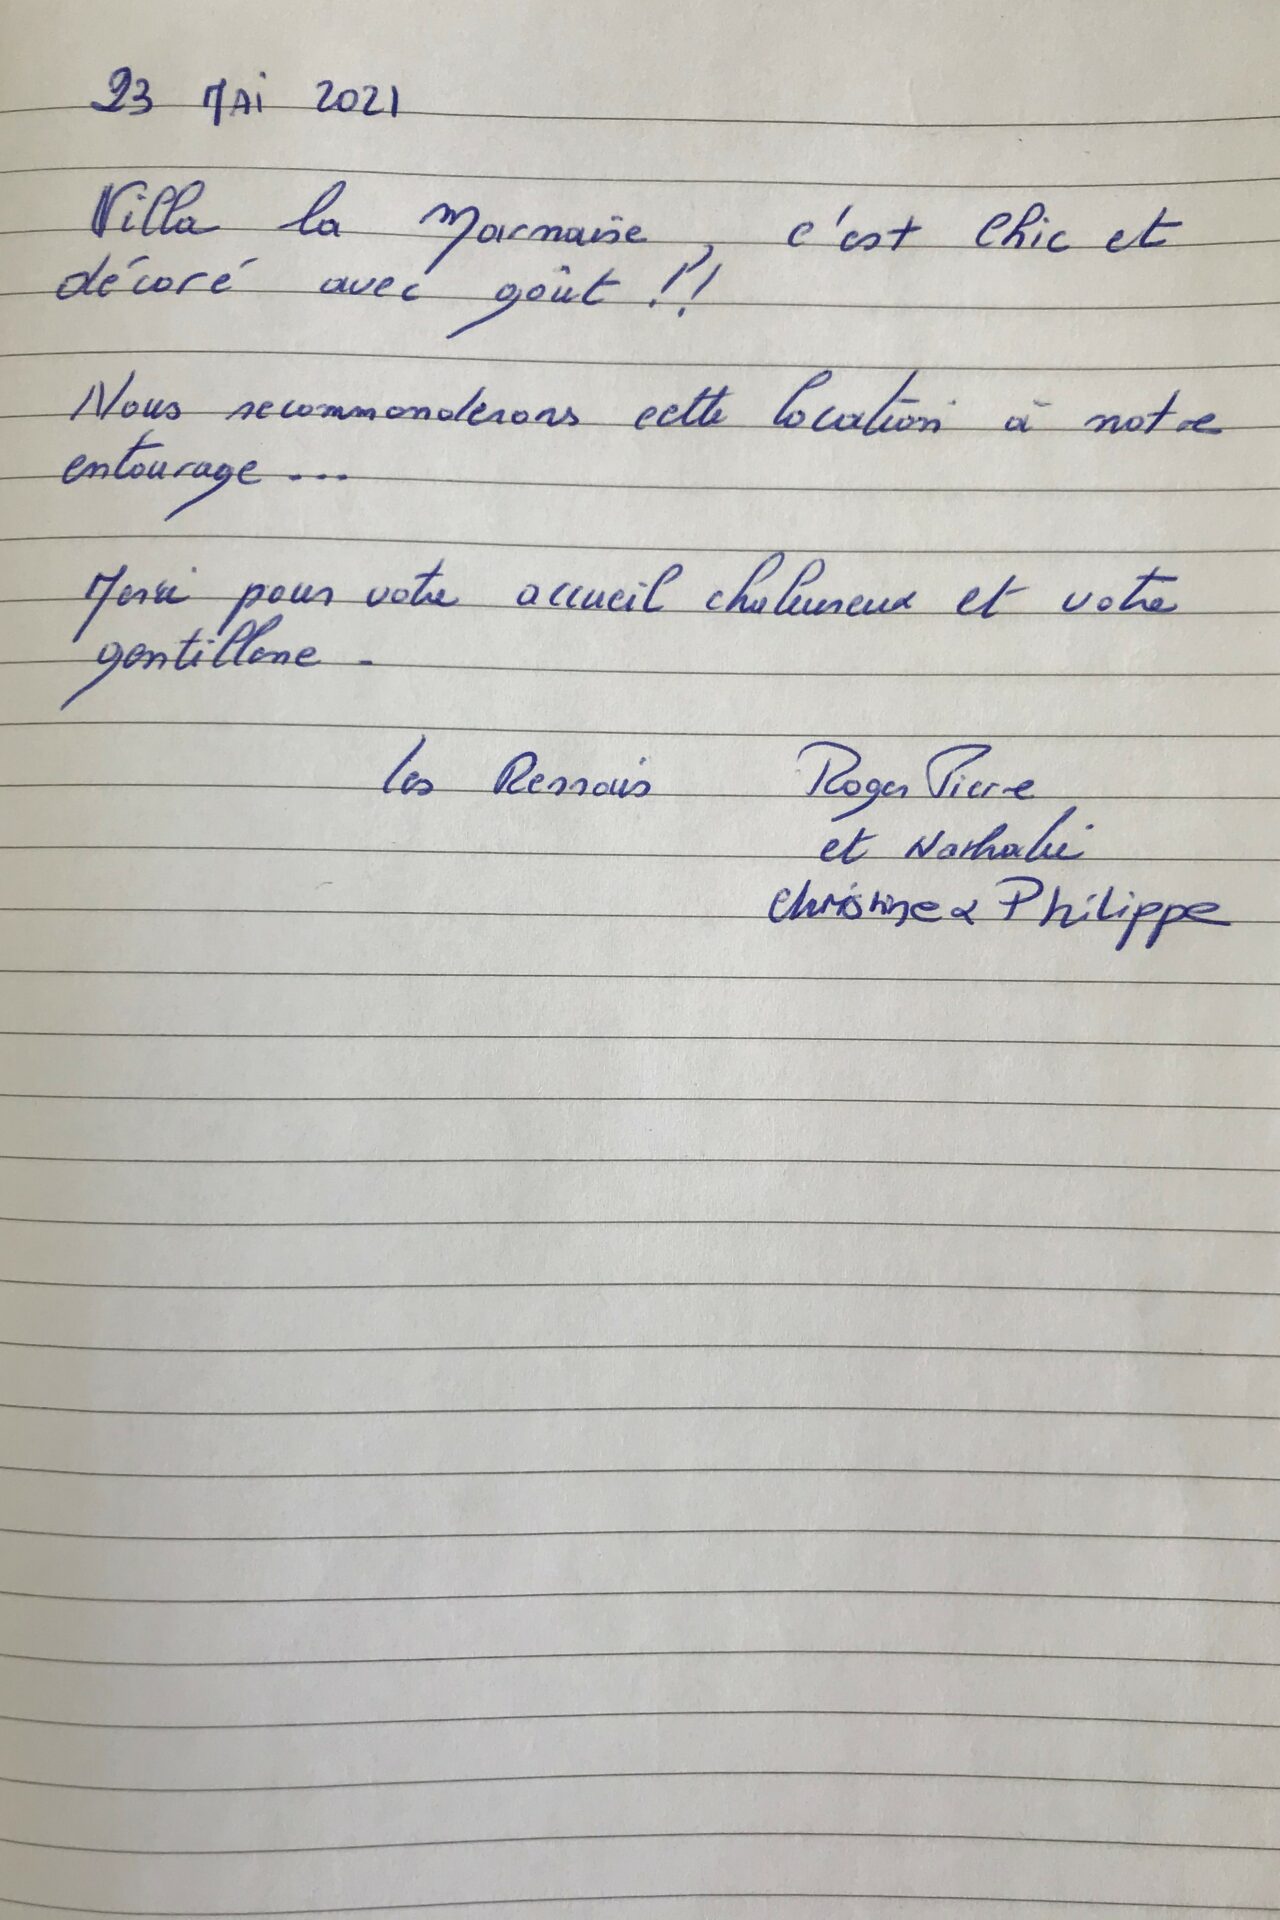 23 MAi 2021
Villa la Marnaise, c'est Chic et
décoré avec goût !!
Nous recommanderons cette location à notre
entourage ...
Merci pour votre accueil chaleureux et votre
gentillesse.
les Rémois Roger Pierre
et Nathalie
Christine & Philippe